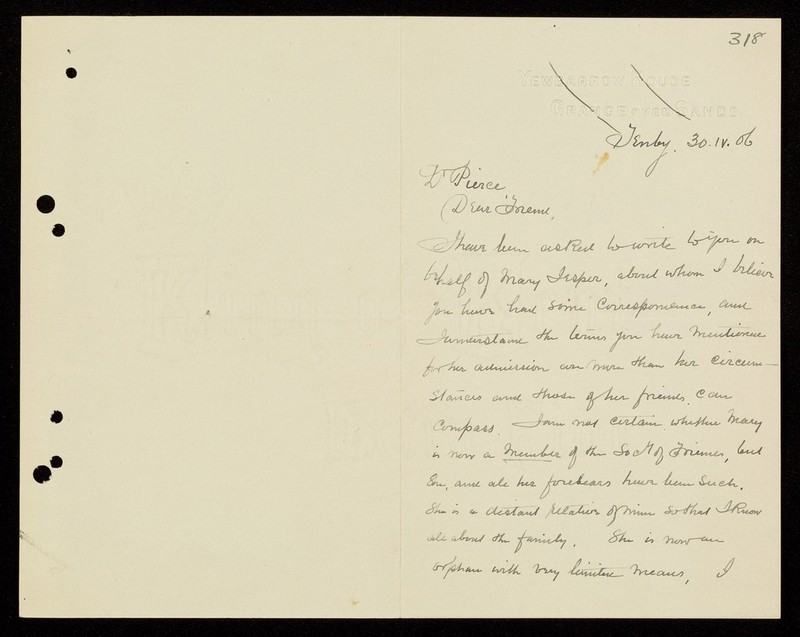 318
YEWBARROW HOUSE
GRANGE OVER SANDS
Tenby. 30.IV.06
Dr Pierce
Dear Friend,
I have been asked to write to you on
behalf of Mary Jesper, about whom I believe
you have had some correspondence, and
I understand the terms you have mentioned
for her admission are more than her circum-
stances and those of her friends can
compass. I am not certain whether Mary
is now a Member of the Socy of Friends, but
and all her forebears have been such.
She is a distant relative of mine so that I know
all about the family. She is now an
orphan with very limited means, I